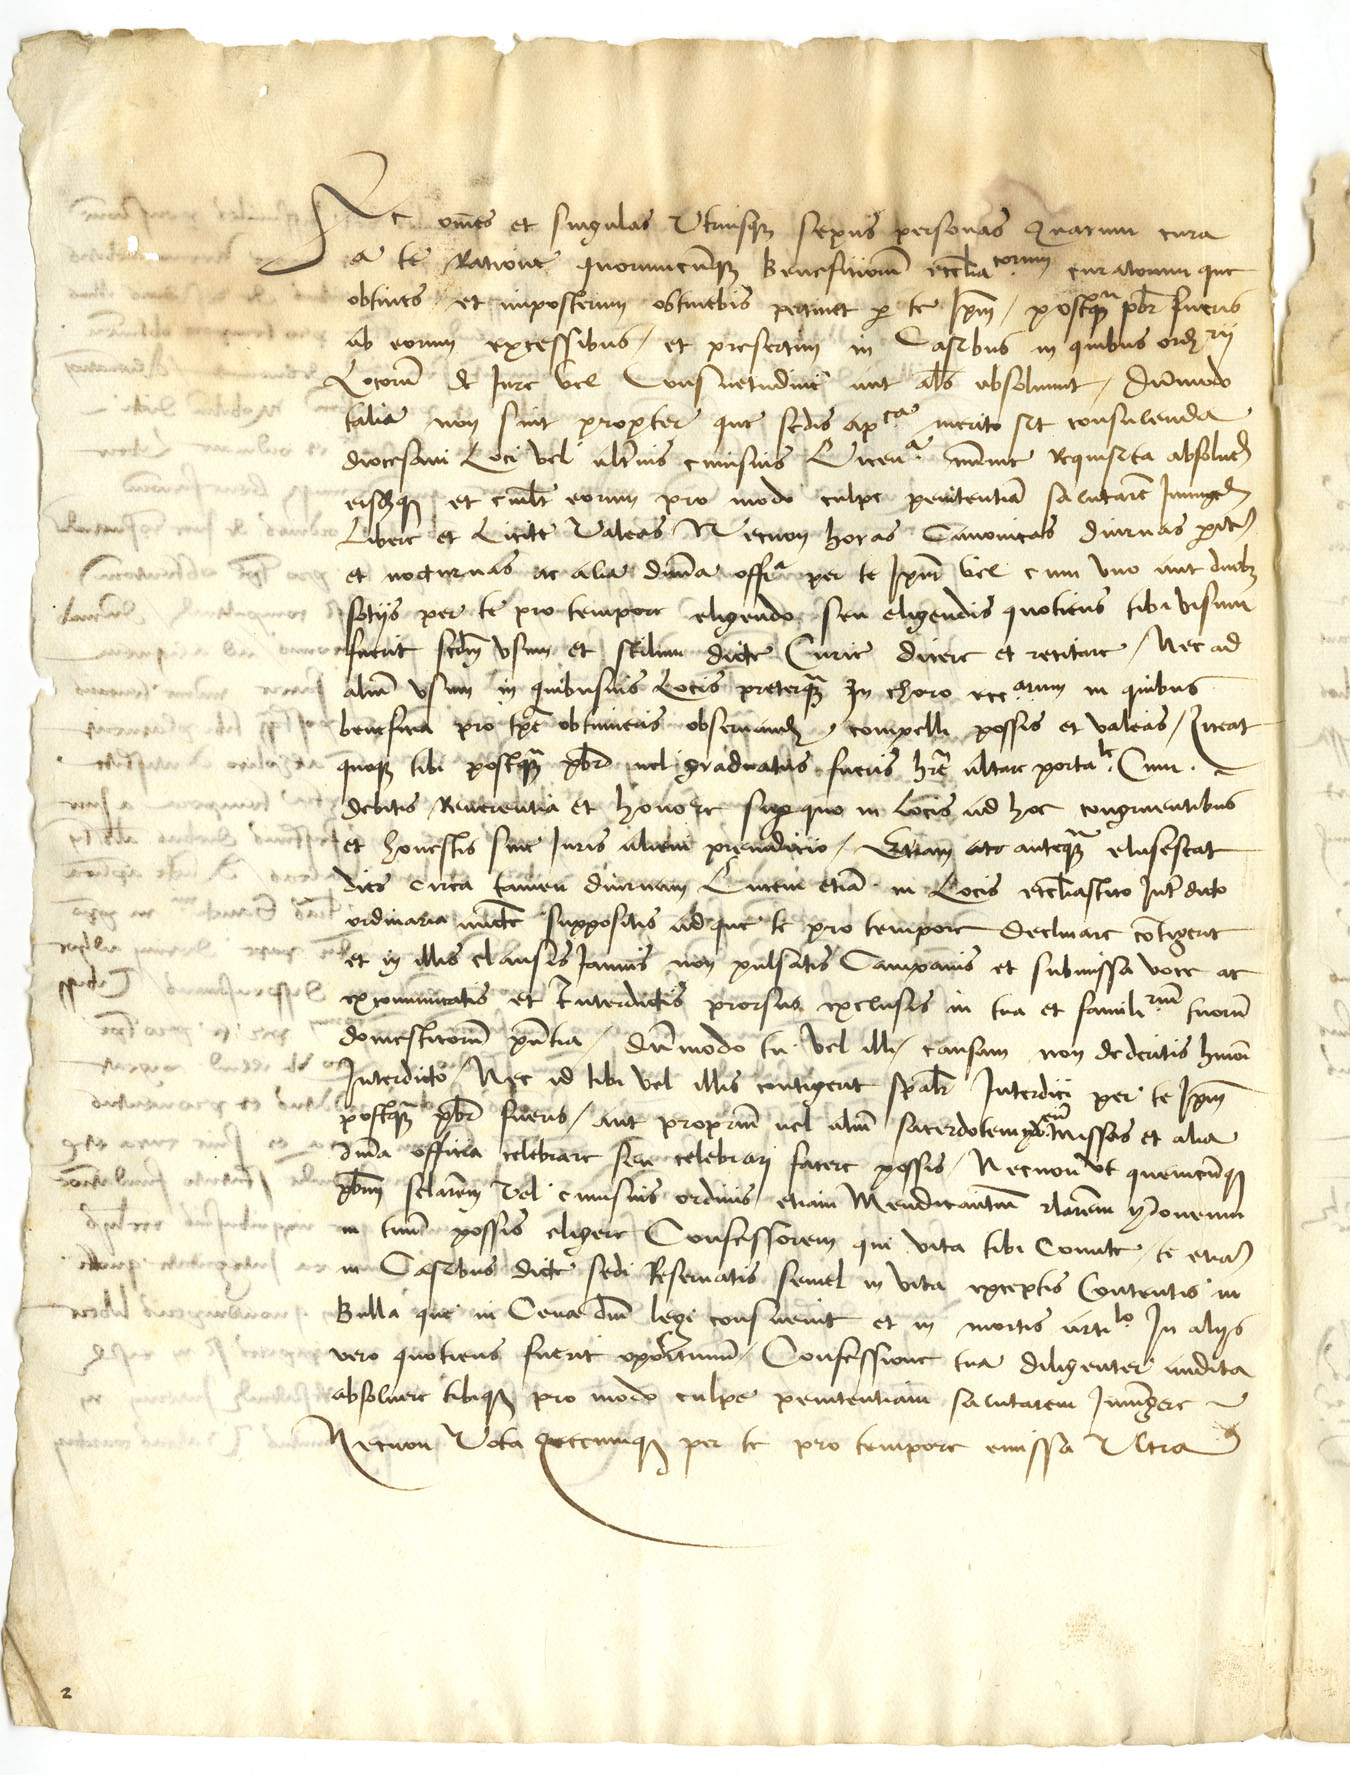 Ac om̄es et singulas Utriusq₃ sexus personas Quarum cura
a te Ratione quorumcunq₃ Beneficiorū eccl̄ia.corum curatorum que
obtines et imposterum obtinebis pertinet p te Ip̄m / postq̄ pb̄r fueris
ab eorum excessibus / et presertim in Casibus in quibus ord.rij
Locorū de Iure vel Consuetudine aut al̄s absoluunt / dūmodo
talia non sint propter que sedis ap.ca merito sit consulenda
diocesani Loci vel alterius cuiusuis Licen.a minime Requisita absoluen̄
eisdemq₃ et cuil̄t eorum pro modo culpe penitentiā salutarē Iniungen̄
Libere et Licite Valeas Necnon horas Canonicas diurnas parit̄
et nocturnas ac alia diuina offi.a per te Ip̄m vel cum vno aut duob₃
sotijs per te pro tempore eligendo seu eligendis quotiens tibi visum
fuerit scd̄m vsum et stilum dicte Curie dicere et recitare / Nec ad
aliū vsum in quibusuis Locis preterq̄ In choro ecc.arum in quibus
beneficia pro tp̄e obtinueris obseruand̄ compelli possis et valeas / Liceat
quoq₃ tibi postq̄ pb̄r uel graduatus fueris hr̄e altare porta.le Cum
debitis Reuerentia et honore super quo in Locis ad hoc congruentibus
et honestis sine Iuris alieni preiuditio / Etiam anteq̄ elusescat
dies circa tamen diurnam Lucem etiā in Locis ecclīastico Interdicto
ordinaria auctē suppositis ad que te pro tempore declinare cōtigerit
et in illis clausis Ianuis non pulsatis Campanis et submissa voce ac
excommunicatis et Interdictis prorsus exclusis in tua et famili.rum tuorū
domesticorū pn̄tia / dūmodo tu vel illi causam non dederitis hm̄oi
Interdicto / Nec id tibi vel illis contigerit spāl̄r Interdici per te Ip̄m
postq̄ pb̄r fueris / aut propriū uel aliū sacerdotem missas et alia
diuina officia celebrare seu celebrari facere possis / Necnon vt quemcūq₃
pb̄rm sclarem vel cuiusuis ordinis etiam Mendicantiū rlarem ydoneum
in tuū possis eligere Confessorem qui vita tibi Comite te etiā
in Casibus dicte sedi Reseruatis semel in vita exceptis Contentis in
Bulla que in Cena dn̄i legi consueuit et in mortis arti.lo In alijs
vero quotiens fuerit oportunū Confessione tua diligenter audita
absoluere tibiq₃ pro modo culpe penitentiam salutarem Iniūgere
Necnon Vota quecunq₃ per te pro tempore emissa Ultra
2